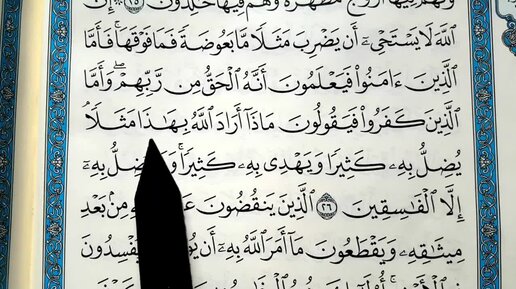 وَلَهُمْ فِيهَا أَزْوَٰجٌ مُّطَهَّرَةٌ وَهُمْ فِيهَا خَٰلِدُونَ ٢٥ إِنَّ
ٱللَّهَ لَا يَسْتَحْىِۦٓ أَن يَضْرِبَ مَثَلًا مَّا بَعُوضَةً فَمَا فَوْقَهَا ۚ فَأَمَّا
ٱلَّذِينَ ءَامَنُوا۟ فَيَعْلَمُونَ أَنَّهُ ٱلْحَقُّ مِن رَّبِّهِمْ ۖ وَأَمَّا
ٱلَّذِينَ كَفَرُوا۟ فَيَقُولُونَ مَاذَآ أَرَادَ ٱللَّهُ بِهَٰذَا مَثَلًا ۘ
يُضِلُّ بِهِۦ كَثِيرًا وَيَهْدِى بِهِۦ كَثِيرًا ۚ بِهِۦٓ
إِلَّا ٱلْفَٰسِقِينَ ٢٦ ٱلَّذِينَ يَنقُضُونَ مِنۢ بَعْدِ
مِيثَٰقِهِۦ وَيَقْطَعُونَ مَآ أَمَرَ ٱللَّهُ بِهِۦٓ أَن